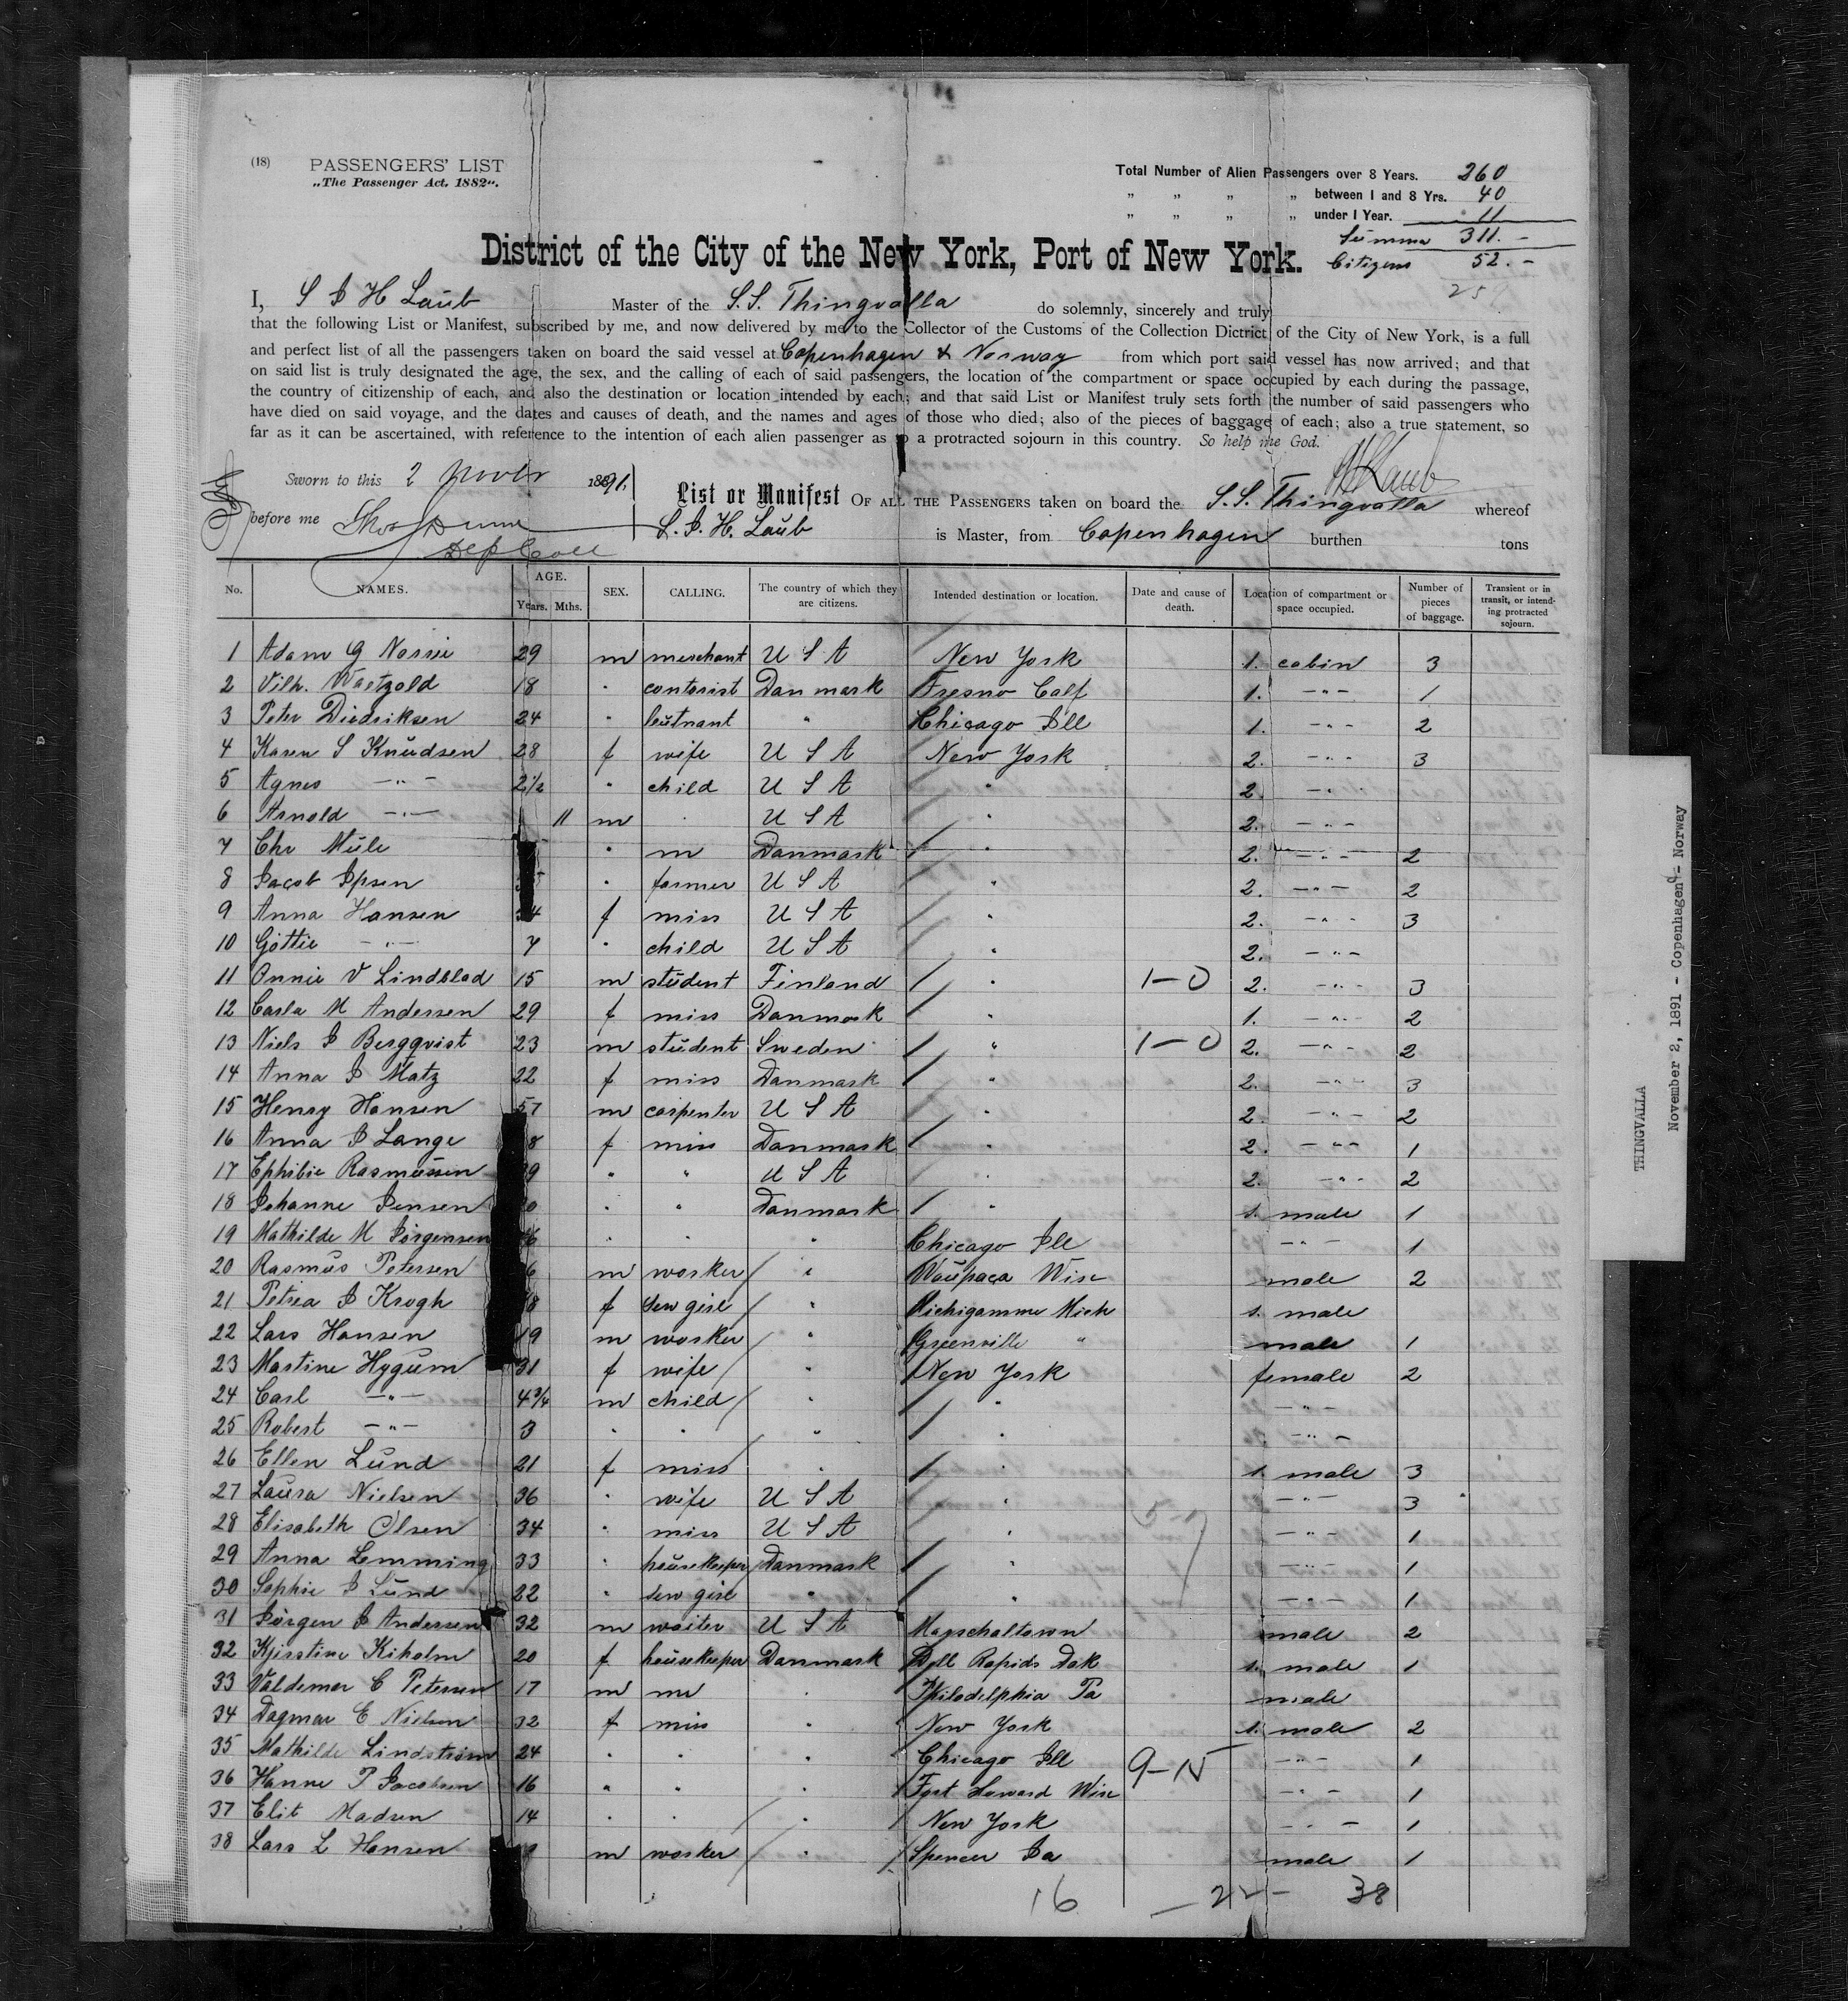 (18) PASSENGERS' LIST
„The Passenger Act. 1882“.
Total Number of Alien Passengers over 8 Years. 260
„ „ „ „ between 1 and 8 Yrs. 40
„ „ „ „ under 1 Year. 11
Summa 311.-
Citizens 52.-
District of the City of the New York, Port of New York.
I, S I H Laub Master of the S.S. Thingvalla do solemnly, sincerely and truly
that the following List or Manifest, subscribed by me, and now delivered by me to the Collector of the Customs of the Collection Dictrict of the City of New York, is a full
and perfect list of all the passengers taken on board the said vessel at Copenhagen & Norway from which port said vessel has now arrived; and that
on said list is truly designated the age, the sex, and the calling of each of said passengers, the location of the compartment or space occupied by each during the passage,
the country of citizenship of each, and also the destination or location intended by each; and that said List or Manifest truly sets forth the number of said passengers who
have died on said voyage, and the dates and causes of death, and the names and ages of those who died; also of the pieces of baggage of each; also a true statement, so
far as it can be ascertained, with reference to the intention of each alien passenger as to a protracted sojourn in this country. So help me God.
Laub
Sworn to this 2 1891,
before me
Dep Coll
List or Manifest OF ALL THE PASSENGERS taken on board the S.S. Thingvalla whereof
S. I. H. Laub is Master, from Copenhagen burthen tons
No. NAMES. AGE. Years. Mths. SEX. CALLING. The country of which they are citizens. Intended destination or location. Date and cause of death. Location of compartment or space occupied. Number of pieces of baggage. Transient or in transit, or intending protracted sojourn.
1 Adam G 29 m merchant U S A New York 1. cabin 3
2 Vilh. Waetzold 18 " contorist Danmark Fresno Calf 1. -"- 1
3 Peter Diedriksen 24 " leutnant " Chicago Ill 1. -"- 2
4 Karen S Knudsen 28 f wife U S A New York 2. -"- 3
5 Agnes -"- 2½ " child U S A " 2. -"-
6 Arnold -"- 11 m " U S A " 2. -"-
7 Chr Mule " m Danmark " 2. -"- 2
8 Jacob Ipsen " farmer U S A " 2. -"- 2
9 Anna Hansen f miss U S A " 2. -"- 3
10 Göttie -"- 7 " child U S A " 2. -"-
11 Onnie V Lindblad 15 m student Finland " 1-0 2. -"- 3
12 Carla M Andersen 29 f miss Danmark " 1. -"- 2
13 Niels J Bergqvist 23 m student Sweden " 1-0 2. -"- 2
14 Anna J Matz 22 f miss Danmark " 2. -"- 3
15 Henry Hansen 57 m carpenter U S A " 2. -"- 2
16 Anna J Lange f miss Danmark " 2. -"- 1
17 Ephibie Rasmussen " " U S A " 2. -"- 2
18 Johanne Jensen " " Danmark " s. male 1
19 Mathilde M Jörgensen " " " Chicago Ill -"- 1
20 Rasmus Petersen m worker " Waupaca Wisc male 2
21 Petrea J Krogh f sew girl " Michigamme Mich s. male
22 Lars Hansen 19 m worker " Greenville " male 1
23 Martine Hygum 31 f wife " New York female 2
24 Carl -"- 4¾ m child " " -"-
25 Robert -"- 3 " " " " -"-
26 Ellen Lund 21 f miss " " s. male 3
27 Laura Nielsen 36 " wife U S A " -"- 3
28 Elisabeth Olsen 34 " miss U S A " -"- 1
29 Anna Lemming 33 " housekeeper Danmark " -"- 1
30 Sophie J Lund 22 " sew girl " " -"- 1
31 Jörgen J Andersen 32 m waiter U S A Marschaltown male 2
32 Kjirstine Kiholm 20 f housekeeper Danmark Dell Rapids Dak s. male 1
33 Valdemar C Petersen 17 m " Philadelphia Pa male
34 Dagmar E Nielsen 32 f miss " New York s. male 2
35 Mathilde Lindström 24 " " " Chicago Ill 9-15 -"- 1
36 Hanne P Jacobsen 16 " " " Fort Howard Wisc -"- 1
37 Elit Madsen 14 " " " New York -"- 1
38 Lars L Hansen m worker " Spencer Ia male 1
16 - 22 - 38
THINGVALLA
November 2, 1891 - Copenhagen & Norway